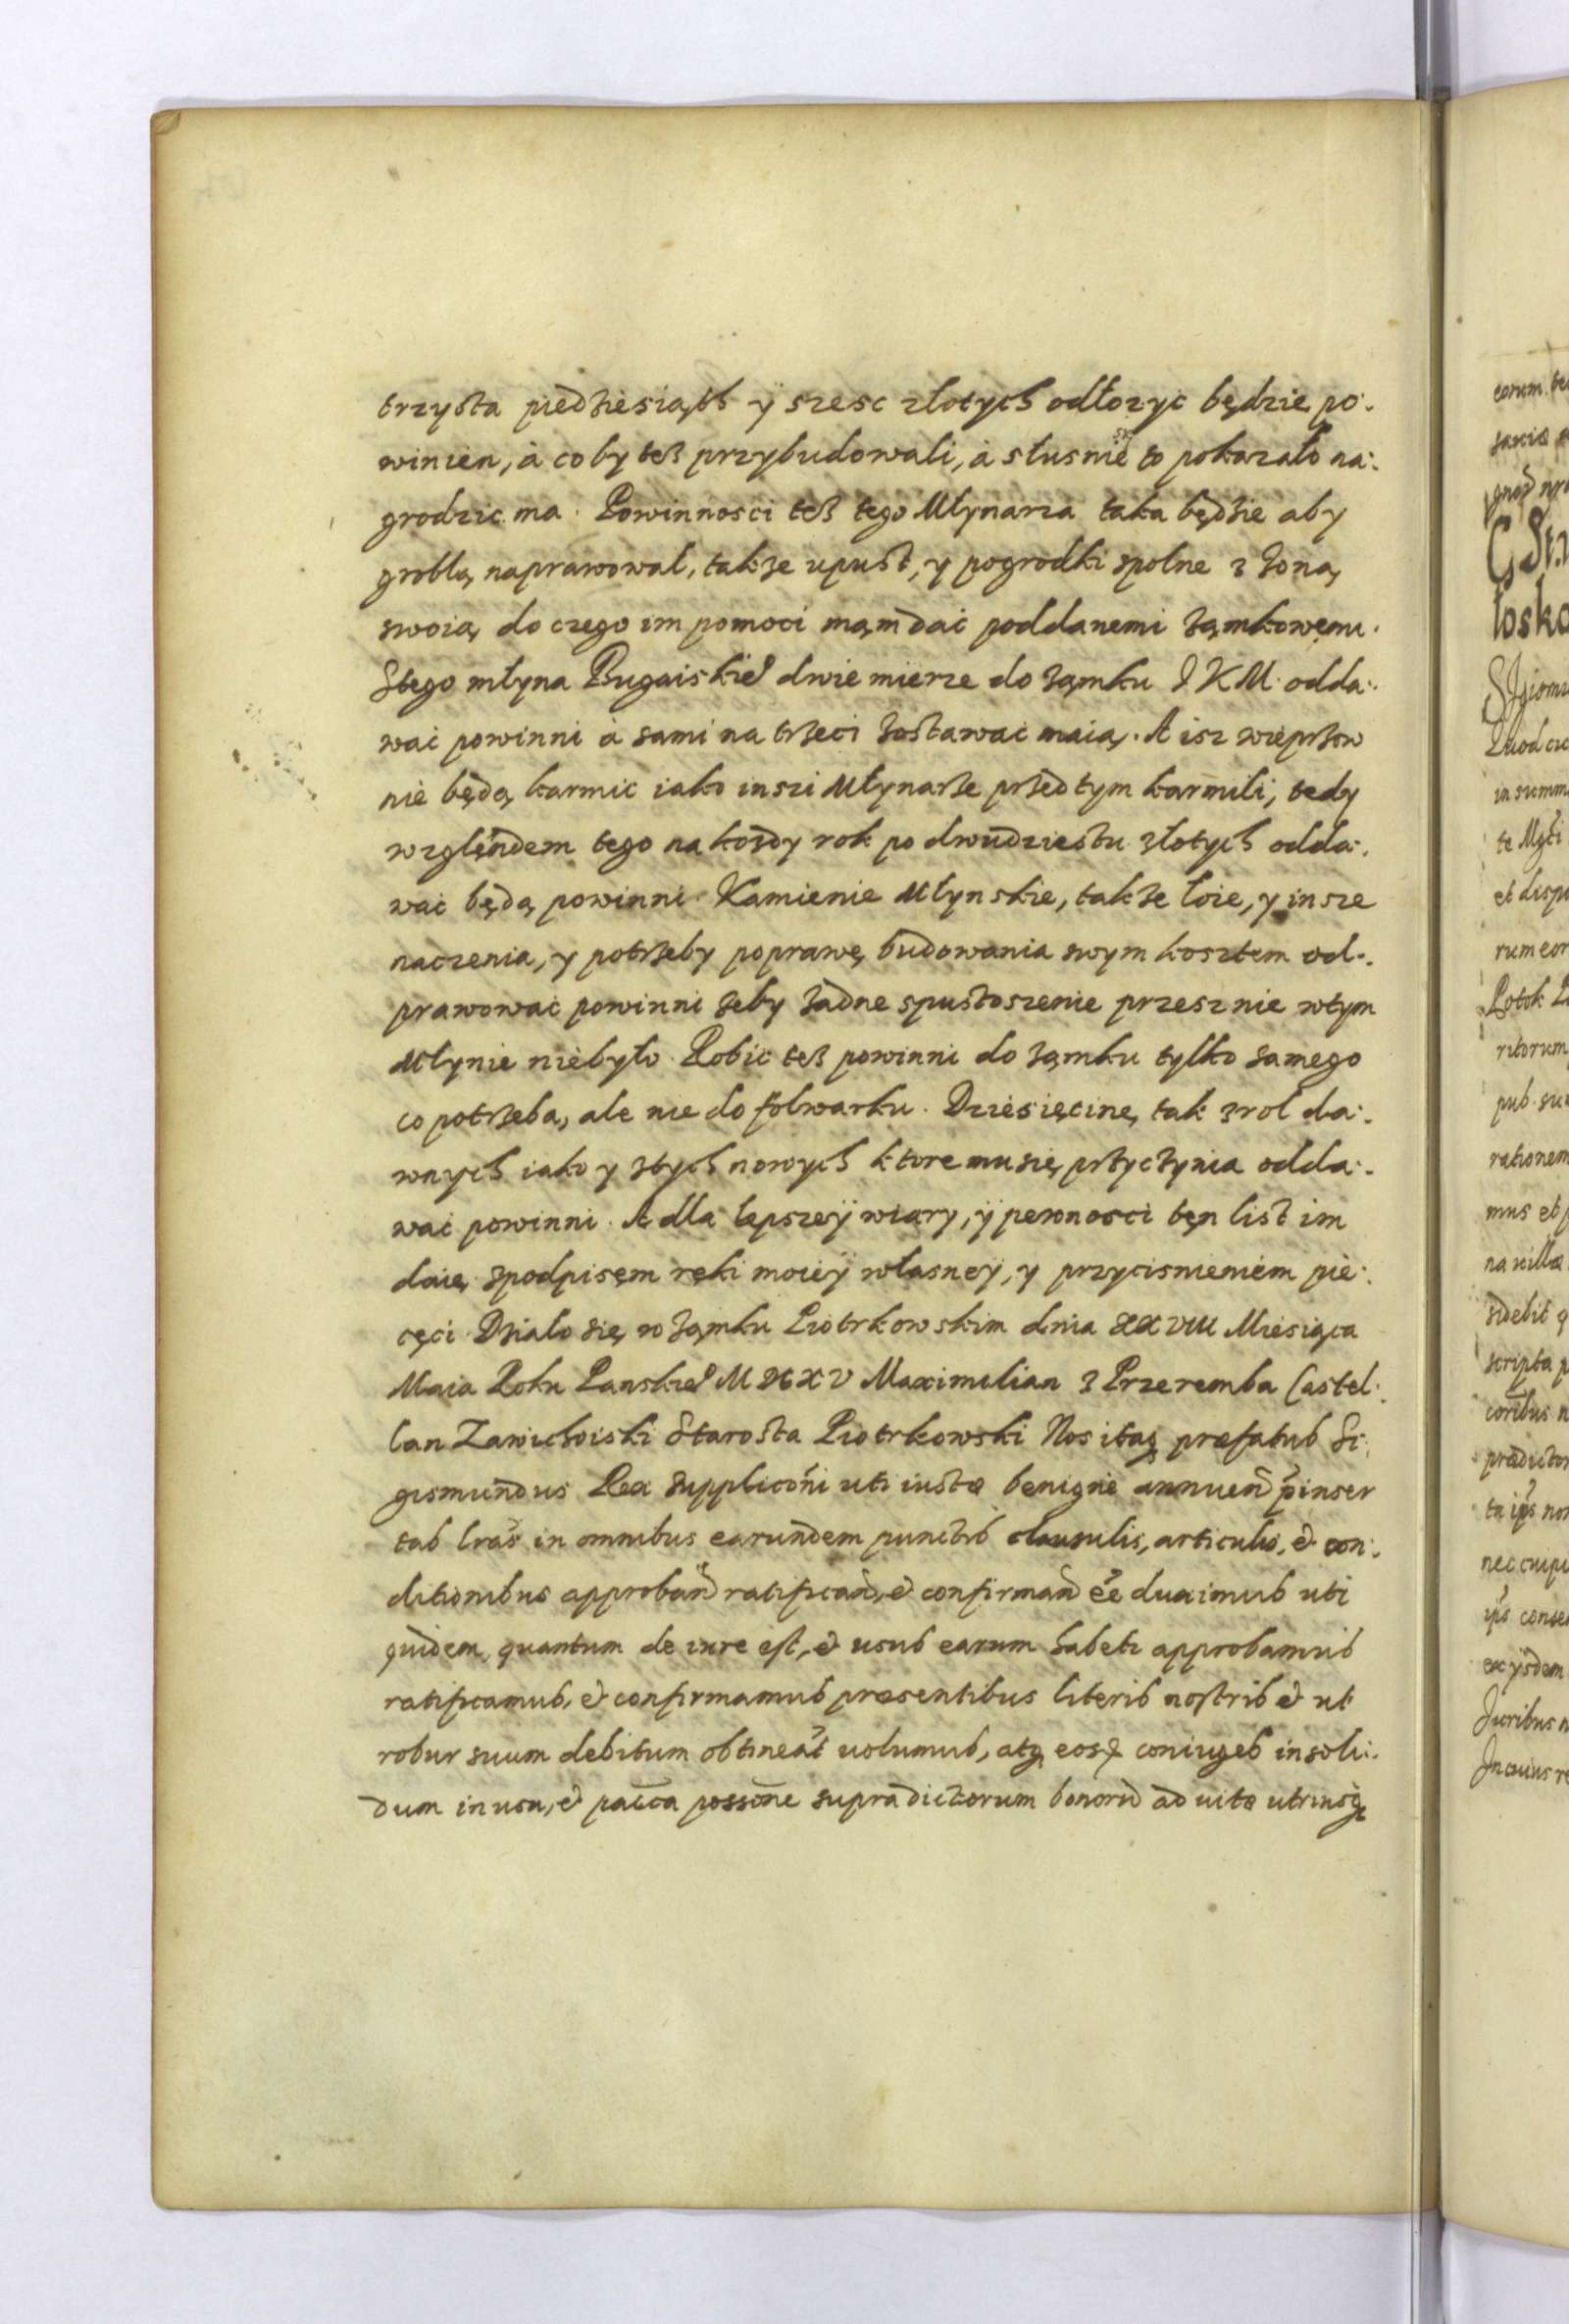 trzysta piedziesiąth ÿ szesc złotych odłozyc będzie po:
winien, à coby tesz przybudowali, à słusnie to pokazało na:
grodzic ma. Powinnosci tesz tego Młynarza taka będzie aby
groblą naprawował, takze upust, y pogrodki spolne z zoną
swoią do czego im pomoci mąm dać poddanemi ząmkowęmi.
Ztego młyna Bugaiskie° dwie mierze do ząmku J K M. odda:
wać powinni à sami na trzeci zostawać maią. A isz wieprzow
nie będą karmic iako inszi Młynarze przed tym karmili, tedy
wzglęndem tego na kożdy rok po dwudziestu złotych odda:
wać będą powinni. Kamienie Młynskie, takze łoie, y insze
naczenia, y potrzeby poprawę budowania swym kosztem od:
prawować powinni zeby żadne spustoszenie przesz nie wtym
Młynie niebyło. Robić tesz powinni do ząmku tylko samego
co potrzeba, ale nie do folwarku. Dziesięcinę tak zrol da:
wnych iako y ztych nowych ktore mu się przyczynia odda:
wać powinni. A dla lepszeÿ wiary, ÿ pewnosci tęn list im
daię zpodpisęm ręki moieÿ własneÿ, y przycisnieniem pie:
cęci. Działo się w ząmku Piotrkowskim dnia XXVIII Miesiąca
Maia Roku Panskie° M DC X V Maximilian z Przeremba Castel:
lan Zawichoiski Starosta Piotrkowski Nos itaq præfatus Si:
gismundus Rex suppliconi uti iustæ benigne annuen pinser
tas lras in omnibus earundem punctis clausulis, articulis, et con:
ditionibus approban ratifican, et confirman ee duximus uti
quidem, quantum de iure est, et usus earum habetr approbamus
ratificamus, et confirmamus præsentibus literis nostris et ut
robur suum debitum obtineat uolumus, atq eosd coniuges in soli:
dum in usu, et pacca possone supradictorum bonoru ad uitæ utriusq